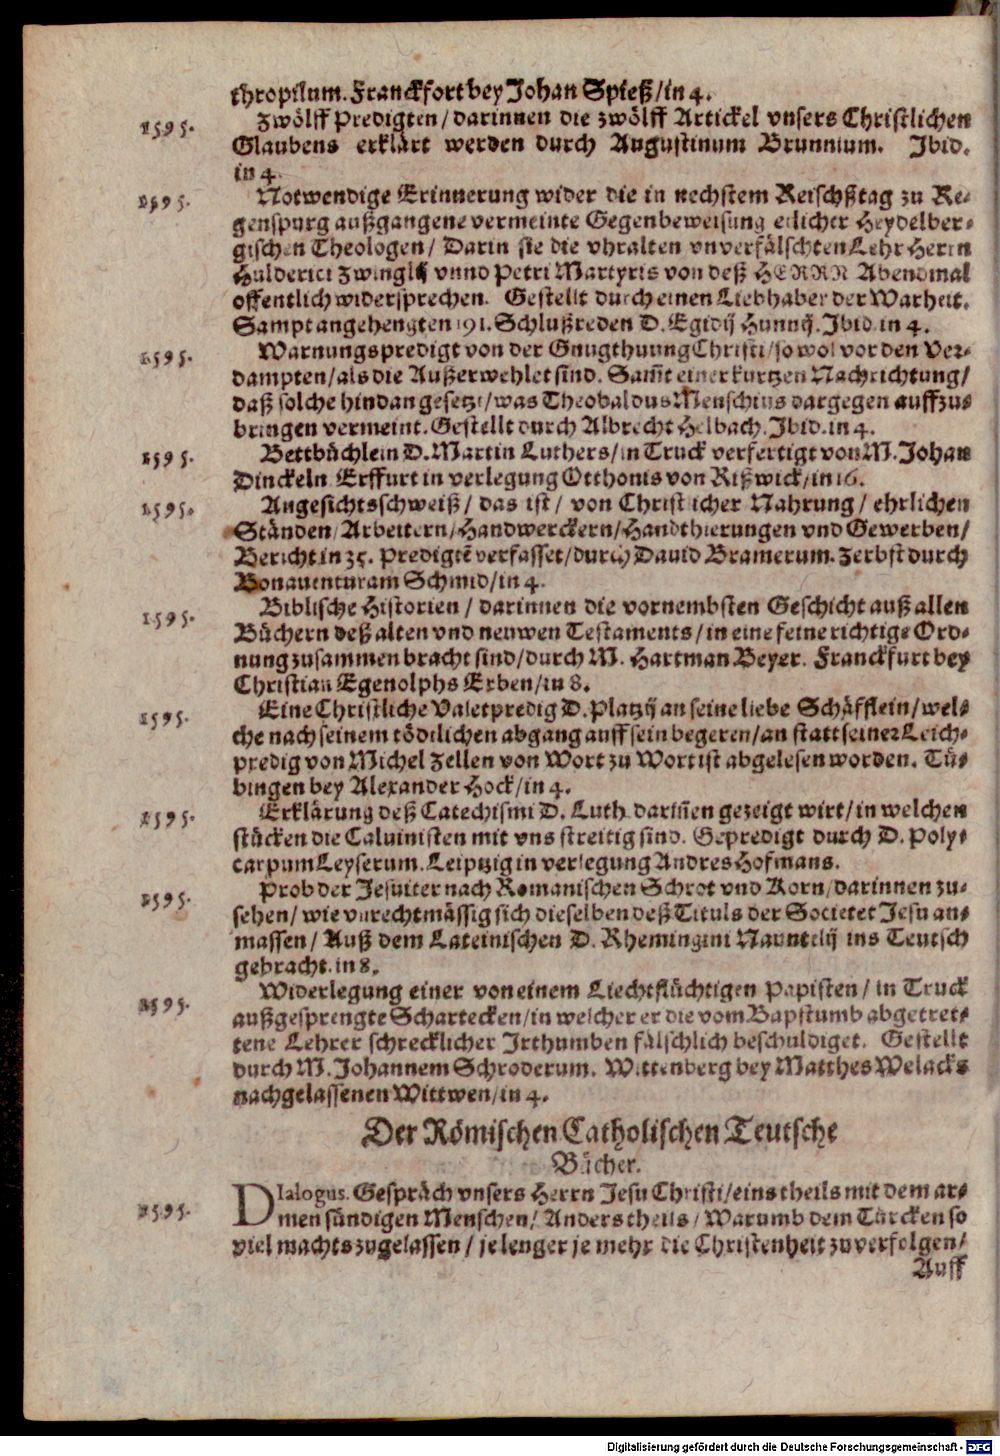 thropilum. Franckfort bey Johan Spieß/in 4.
1595. Zwölff Predigten/ darinnen die zwölff Artickel vnsers Christlichen
Glaubens erklärt werden durch Augustinum Brunnium. Ibid.
in 4.
1595. Notwendige Erinnerung wider die in nechstem Reischßtag zu Re-
genspurg außgangene vermeinte Gegenbeweisung etlicher Heydelber-
gischen Theologen/ Darin sie die vhralten vnverfälschten Lehr Herrn
Hulderici Zwinglij vnnd Petri Martyris von deß HERRN Abendmal
offentlich widersprechen. Gestellt durch einen Liebhaber der Warheit.
Sampt angehengten 191. Schlußreden D. Egidij Hunnij. Ibid. in 4.
1595. Warnungspredigt von der Gnugthuung Christi/ so wol vor den Ver-
dampten/ als die Außerwehlet sind. Sam̃t einer kurtzen Nachrichtung/
daß solche hindan gesetzt/ was Theobaldus Menschius dargegen auffzu-
bringen vermeint. Gestellt durch Albrecht Helbach. Ibid. in 4.
1595. Bettbüchlein D. Martin Luthers/ in Truck verfertigt von M. Johan
Dinckeln Erffurt in verlegung Otthonis von Rißwick/ in 16.
1595. Angesichtsschweiß/ das ist/ von Christlicher Nahrung/ ehrlichen
Ständen/ Arbeitern/ Handwerckern/ Handthierungen vnd Gewerben/
Bericht in 35. Predigtẽ verfasset/ durch Dauid Bramerum. Zerbst durch
Bonauenturam Schmid/ in 4.
1595. Biblische Historien/ darinnen die vornembsten Geschicht auß allen
Büchern deß alten vnd neuwen Testaments/ in eine feine richtige Ord-
nung zusammen bracht sind/ durch M. Hartman Beyer. Franckfurt bey
Christian Egenolphs Erben/ in 8.
1595. Eine Christliche Valetpredig D. Platzij an seine liebe Schäfflein/ wel-
che nach seinem tödtlichen abgang auff sein begeren/ an statt seiner Leich-
predig von Michel Zellen von Wort zu Wort ist abgelesen worden. Tü-
bingen bey Alexander Hock/ in 4.
1595. Erklärung deß Catechismi D. Luth. dariñen gezeigt wirt/ in welchen
stücken die Caluinisten mit vns streitig sind. Gepredigt durch D. Poly-
carpum Leyserum. Leiptzig in verlegung Andres Hofmans.
1595. Prob der Jesuiter nach Romanischen Schrot vnd Korn/ darinnen zu-
sehen/ wie vnrechtmässig sich dieselben deß Tituls der Societet Jesu an-
massen/ Auß dem Lateinischen D. Rhemingini Nauntelij ins Teutsch
gebracht. in 8.
1595. Widerlegung einer von einem Liechtflüchtigen Papisten/ in Truck
außgesprengte Schartecken/ in welcher er die vom Bapstumb abgetret-
tene Lehrer schrecklicher Irthumben fälschlich beschuldiget. Gestellt
durch M. Johannem Schroderum. Wittenberg bey Matthes Welacks
nachgelassenen Wittwen/ in 4.
Der Römischen Catholischen Teutsche
Bücher.
1595. DIalogus. Gespräch vnsers Herrn Jesu Christi/ eins theils mit dem ar-
men sündigen Menschen/ Anders theils/ Warumb dem Türcken so
viel machts zugelassen/ je lenger je mehr die Christenheit zuverfolgen/
Auff
Digitalisierung gefördert durch die Deutsche Forschungsgemeinschaft - DFG